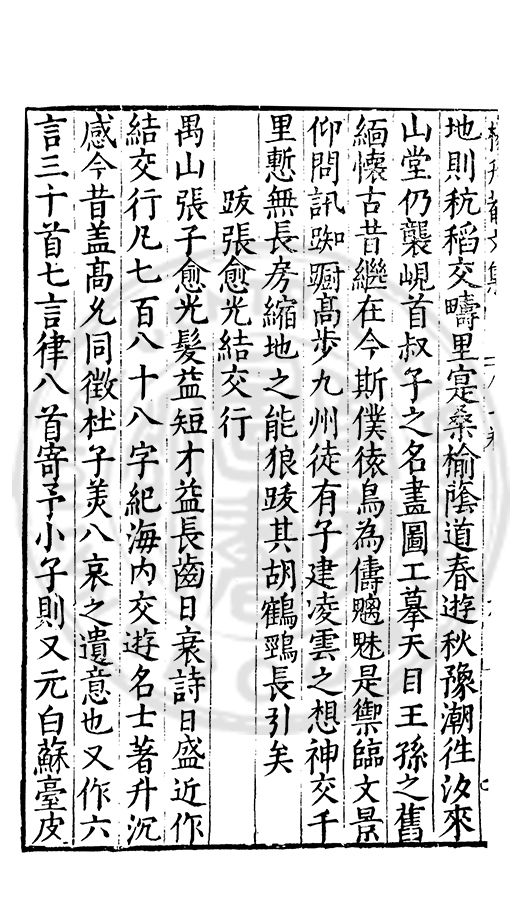 地則秔稻交疇里寔桑榆蔭道春遊秋豫潮徃汐來
山堂仍襲峴首叔子之名畵圖工摹天目王孫之舊
緬懷古昔繼在今斯僕猿鳥為儔魑魅是禦臨文景
仰問訊踟躕高步九州徒有子建凌雲之想神交千
里慙無長房縮地之能狼跋其胡鶴頸長引矣
跋張愈光結交行
禺山張子愈光髮益短才益長齒日衰詩日盛近作
結交行凢七百八十八字紀海内交遊名士著升沉
感今昔盖髙允同徵杜子美八哀之遺意也又作六
言三十首七言律八首寄予小子則又元白蘇臺皮